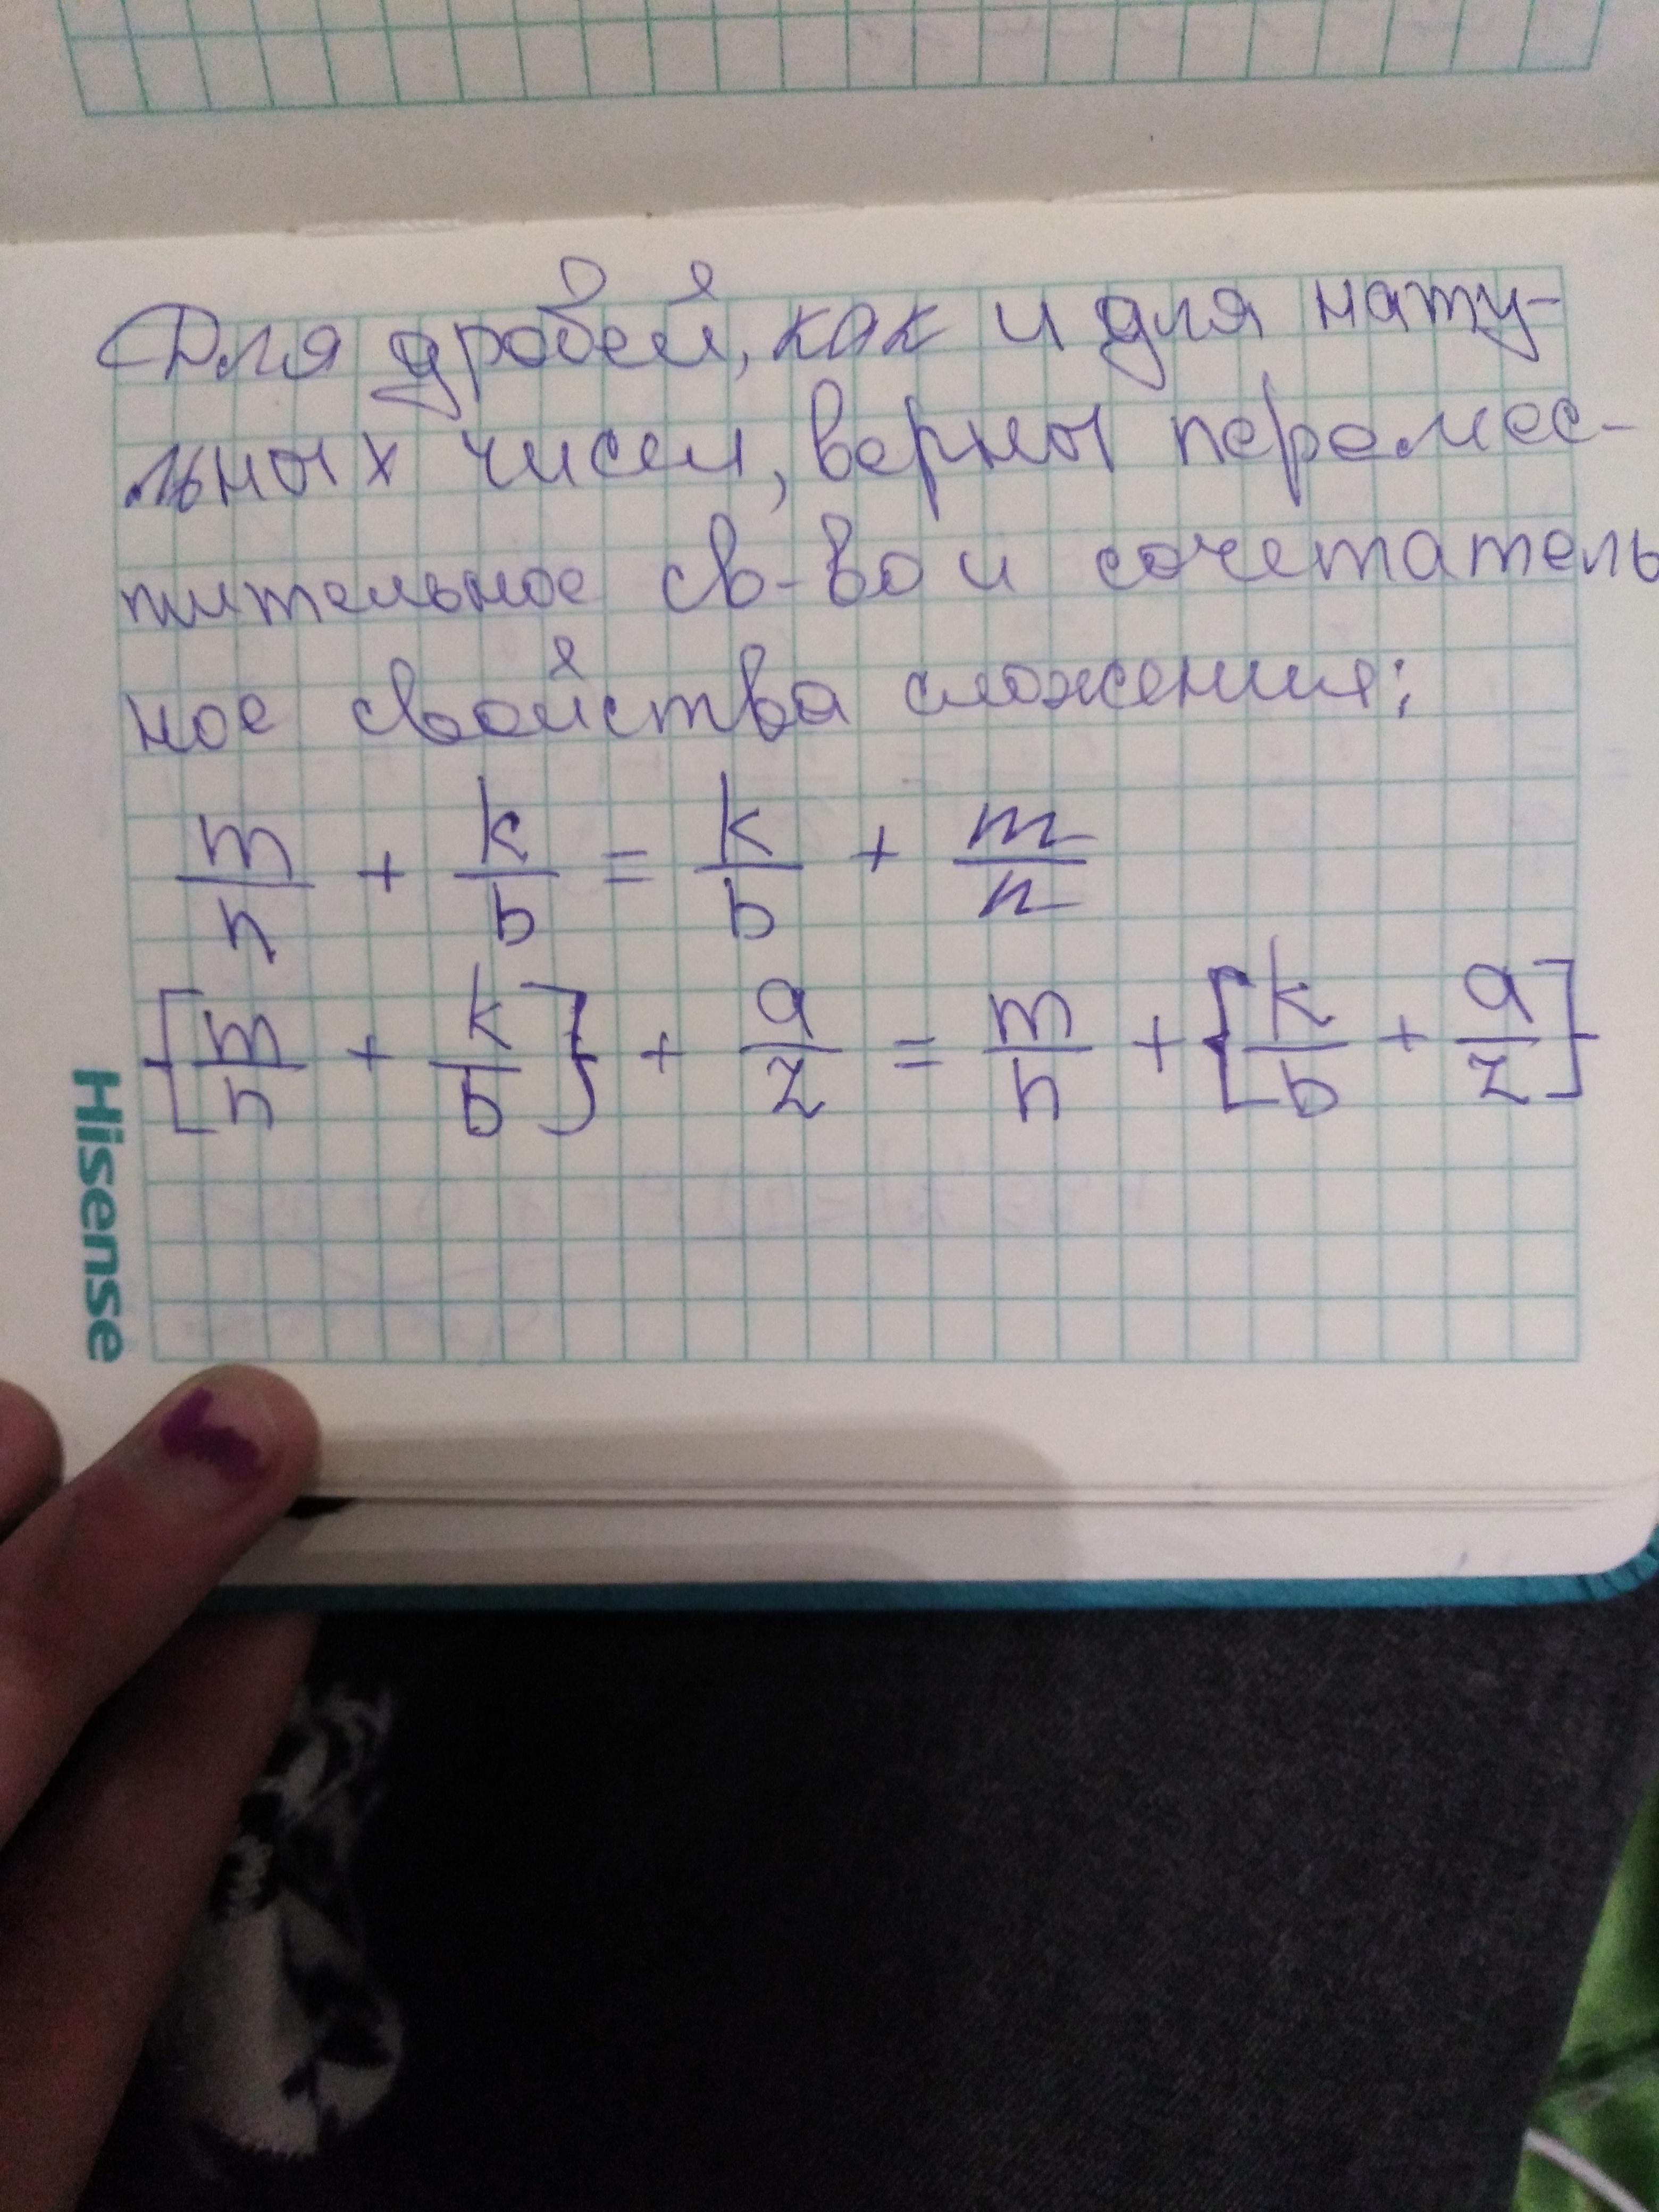 Для дробей, как и для нату-
льных чисел, верны перемес-
тительное св-во и сочетатель
ное свойства сложения:
m/n + k/b = k/b + m/n
[m/n + k/b} + a/z = m/n + {k/b + a/z]
Hisense